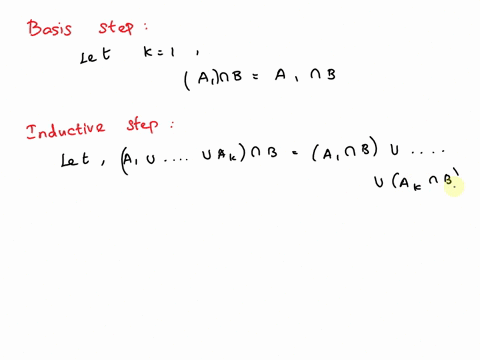 Basis step:
Let k=1,
(A₁)∩B = A₁ ∩B
Inductive step:
Let, (A₁ ∪ .... ∪ Aₖ)∩B = (A₁∩B) ∪ ....
∪ (Aₖ ∩ B)